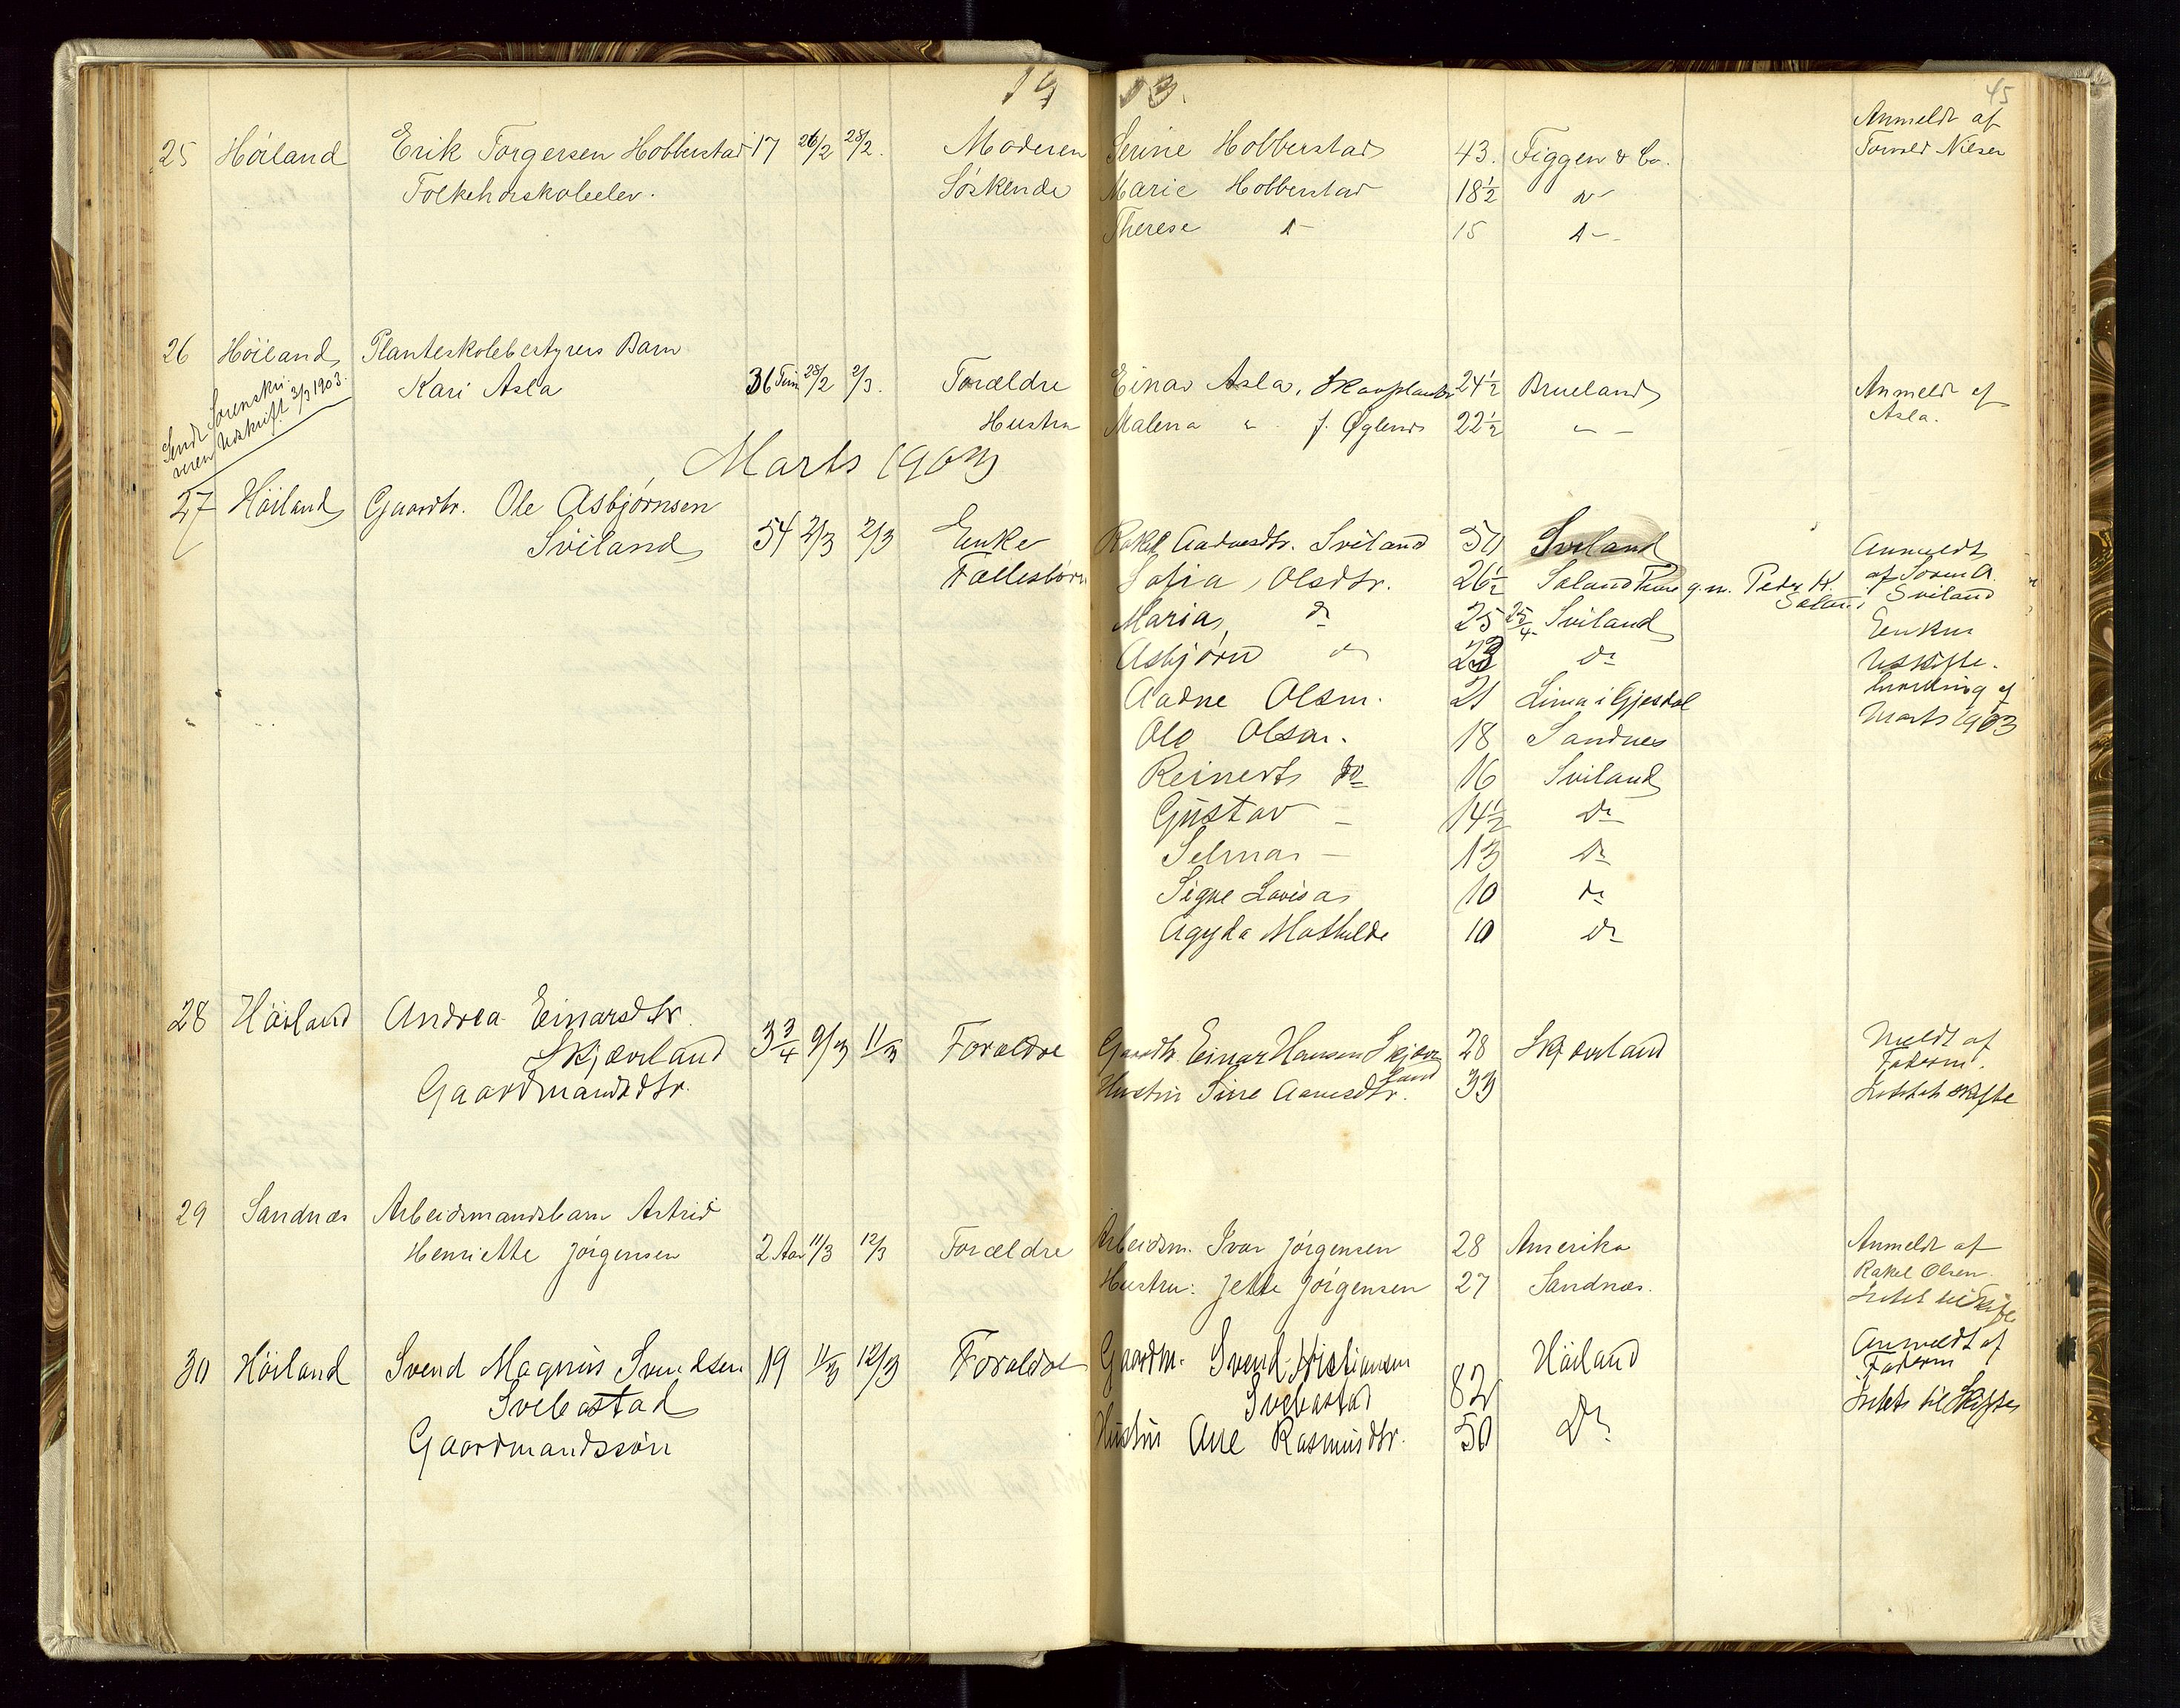 1903.
45
25 Höiland Erik Torgersen Hobberstad 17 26/2 28/2. Moderen Serine Hobberstad 43. Figgen & Co. Anmeldt af
Folkehøiskoleelev. Søskende Marie Hobberstad 18½ Torvald Nilsen
Therese 15
26 Höiland Planteskolebestyrers Barn
Kari Asla 36 Tim 28/2 2/3. Forældre Einar Asla, 24½ Brueland Anmeldt af
Hustru Malena " f. Øglend 22½ " - Asla.
Sendt Sorenskri-
veren Udskrift 3/3 1903.
Marts 1903
27 Höiland Gaardbr. Ole Asbjørnsen
Sviland 54 2/3 2/3 Enke Rakel Aadnesdtr. Sviland 50 Sviland Anmeldt
Fællesbörn Sofia Olsdtr. 26½ g.m. Peder af Sören A.
Maria do 25 25/4 Sviland Sviland
Asbjørn do 23 do Enken
Aadne Olsen. 21 Lima i Gjesdal
Ole Olsen. 18 Sandnes Marts 1903
Reinert do 16 Sviland
Gustav - 14½ do
Selma - 13 do
Signe Lovisa 10 do
Agyda Mathilde 10 do
28 Höiland Andrea Einarsdtr.
Skjæveland 3¾ 9/3 11/3 Forældre Gaardbr. Einar Hansen Skjæve 28 Skjæveland Meldt af
land Faderen.
Gaardmandsdtr. Hustru Sine 33 Intet at skifte
29 Sandnæs Arbeidsmandsbarn Astrid
Henriette Jørgensen 2 Aar 11/3 12/3 Forældre Arbeidsm. Ivar Jørgensen 28 Amerika Anmeldt af
Hustru: Jette Jørgensen 27 Sandnæs. Rakel Olsen.
Intet til Skifte
30 Höiland Svend Magnus Svendsen 19 11/3 12/3 Forældre Gaardm. Svend Kristiansen Höiland Anmeldt af
Svebastad Svebastad 82 Faderen
Gaardmandssön Hustru Ane Rasmusdtr. 50 Do Intet til Skifte